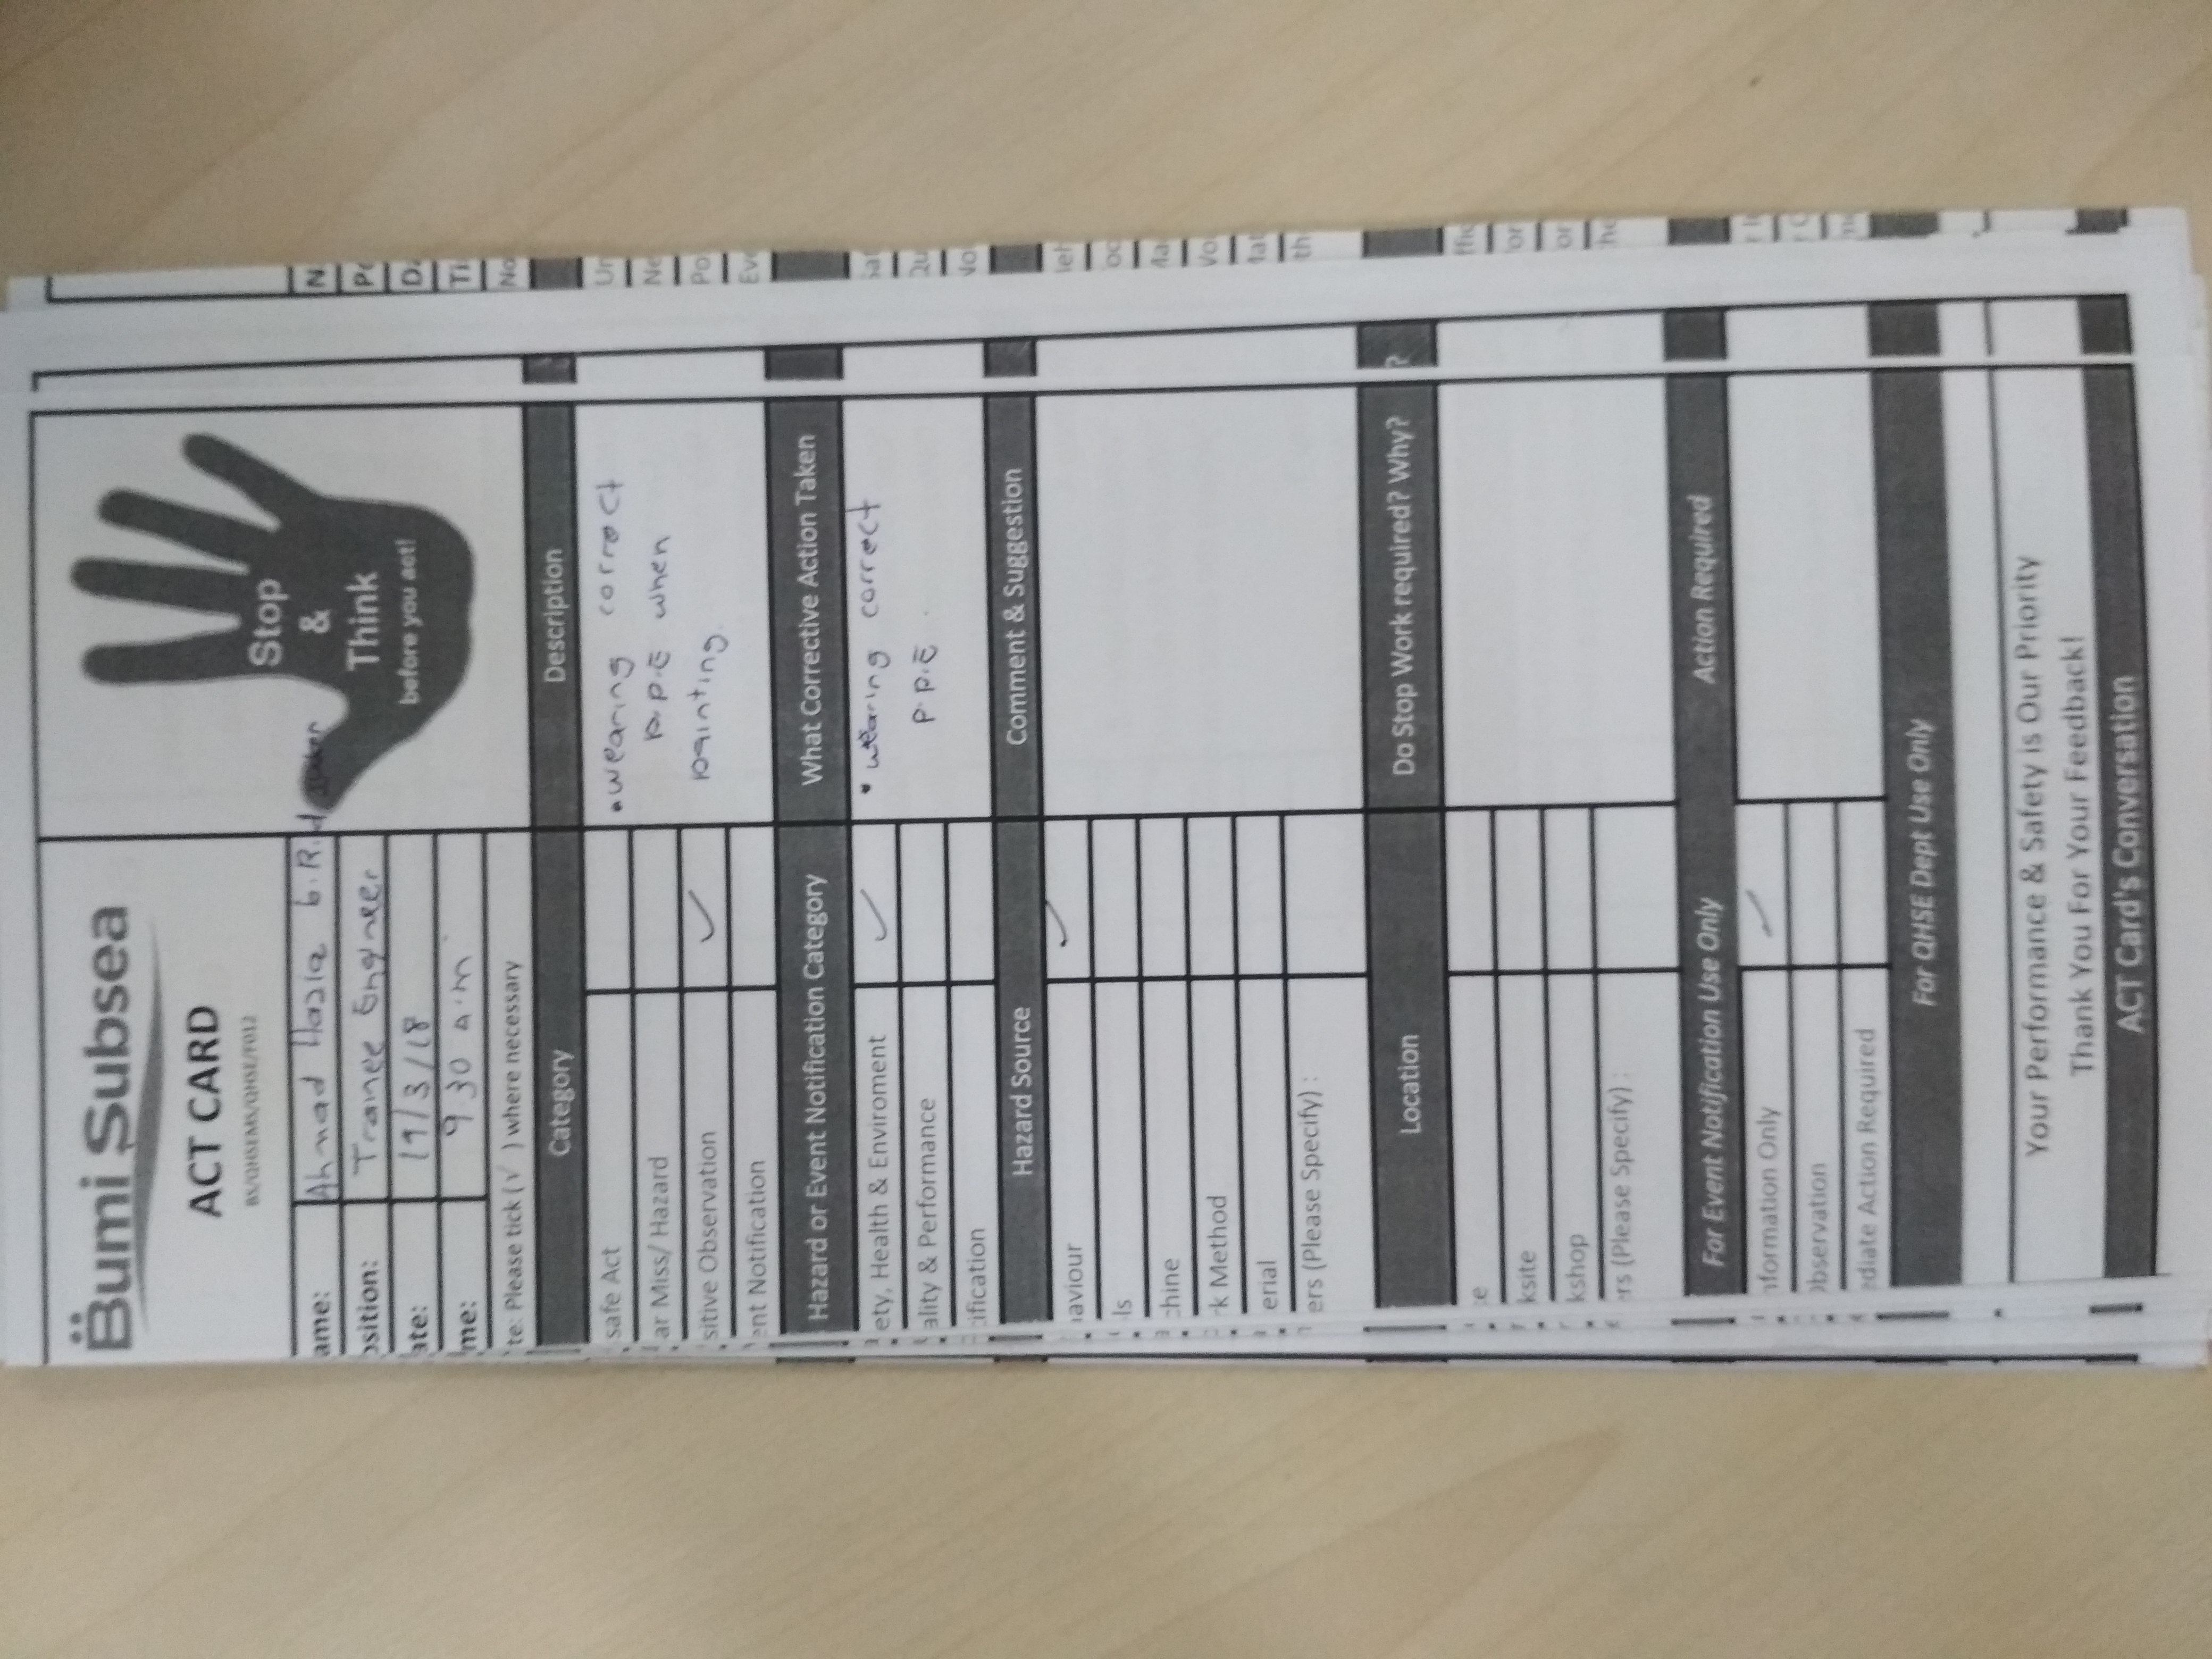 Bumi Subsea
ACT CARD
BS/QHSEMS/QHSE/F012
Stop
&
Think
before you act!
ame: Ahmad
osition: Trainee Engineer
ate: 19/3/18
me: 9.30 a.m
te: Please tick (√ ) where necessary
Category Description
safe Act • wearing correct
ar Miss/ Hazard p.p.E when
sitive Observation ✓ painting.
ent Notification
Hazard or Event Notification Category What Corrective Action Taken
ety, Health & Enviroment ✓ • wearing correct
ality & Performance p.p.E.
ification
Hazard Source Comment & Suggestion
aviour ✓
ls
chine
rk Method
erial
ers (Please Specify) :
Location Do Stop Work required? Why?
ce
ksite
kshop
ers (Please Specify) :
For Event Notification Use Only Action Required
nformation Only ✓
Observation
ediate Action Required
For QHSE Dept Use Only
Your Performance & Safety is Our Priority
Thank You For Your Feedback!
ACT Card's Conversation